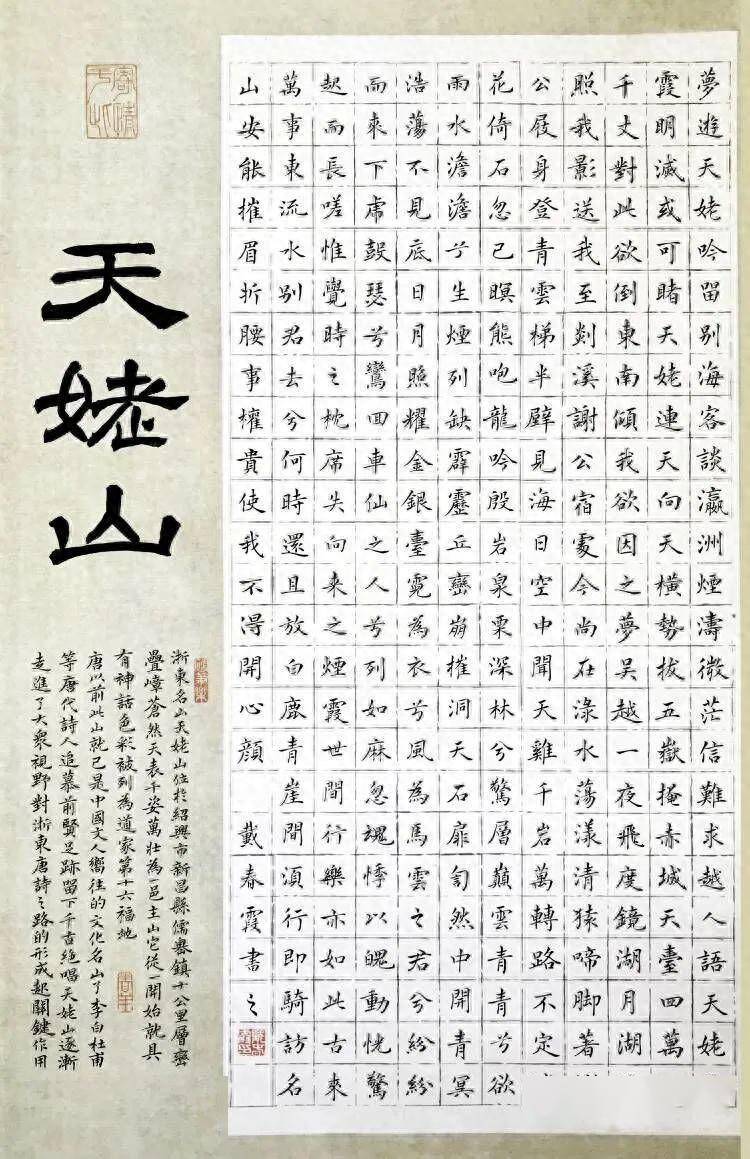 夢遊天姥吟留別海客談瀛洲煙濤微茫信難求越人語天姥
霞明滅或可睹天姥連天向天橫勢拔五嶽掩赤城天臺四萬
千丈對此欲倒東南傾我欲因之夢吳越一夜飛度鏡湖月湖
照我影送我至剡溪謝公宿處今尚在淥水蕩漾清猿啼腳著
公屐身登青雲梯半壁見海日空中聞天雞千岩萬轉路不定
花倚石忽已暝熊咆龍吟殷岩泉栗深林兮驚層巔雲青青兮欲
雨水澹澹兮生煙列缺霹靂丘巒崩摧洞天石扉訇然中開青冥
浩蕩不見底日月照耀金銀臺霓為衣兮風為馬雲之君兮紛紛
而來下虎鼓瑟兮鸞回車仙之人兮列如麻忽魂悸以魄動恍驚
起而長嗟惟覺時之枕席失向來之煙霞世間行樂亦如此古來
萬事東流水別君去兮何時還且放白鹿青崖間須行即騎訪名
山安能摧眉折腰事權貴使我不得開心顏 戴春霞書之
天姥山
浙東名山天姥山位於紹興市新昌縣儒嶴鎮十公里層巒
疊嶂蒼然天表千姿萬壯為一邑主山它從一開始就具
有神話色彩被列為道家第十六福地
唐以前此山就已是中國文人嚮往的文化名山了李白杜甫
等唐代詩人追慕前賢足跡留下千古絕唱天姥山逐漸
走進了大眾視野對浙東唐詩之路的形成起關鍵作用